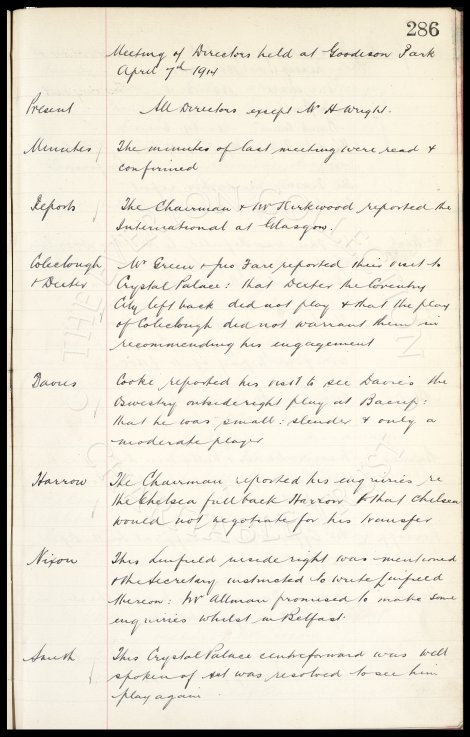 286
Meeting of Directors held at Goodison Park
April 7th 1914
Present All Directors except Mr H Wright.
Minutes The minutes of last meeting were read &
confirmed
Reports The Chairman & Mr Kirkwood reported the
International at Glasgow.
Coleclough Mr Green & Jno Fare reported their visit to
& Dexter Crystal Palace: that Dexter the Coventry
City left back did not play & that the play
of Coleclough did not warrant them in
recommending his engagement
Davies Cooke reported his visit to see Davies the
Oswestry outside right play at Bacup:
that he was small: slender & only a
moderate player
Harrow The Chairman reported his enquiries re
the Chelsea full back Harrow & that Chelsea
would not negotiate for his transfer
Nixon This Linfield inside right was mentioned
& the Secretary instructed to write Linfield
thereon: Mr Allman promised to make some
enquiries whilst in Belfast.
Smith This Crystal Palace centreforward was well
spoken of & it was resolved to see him
play again